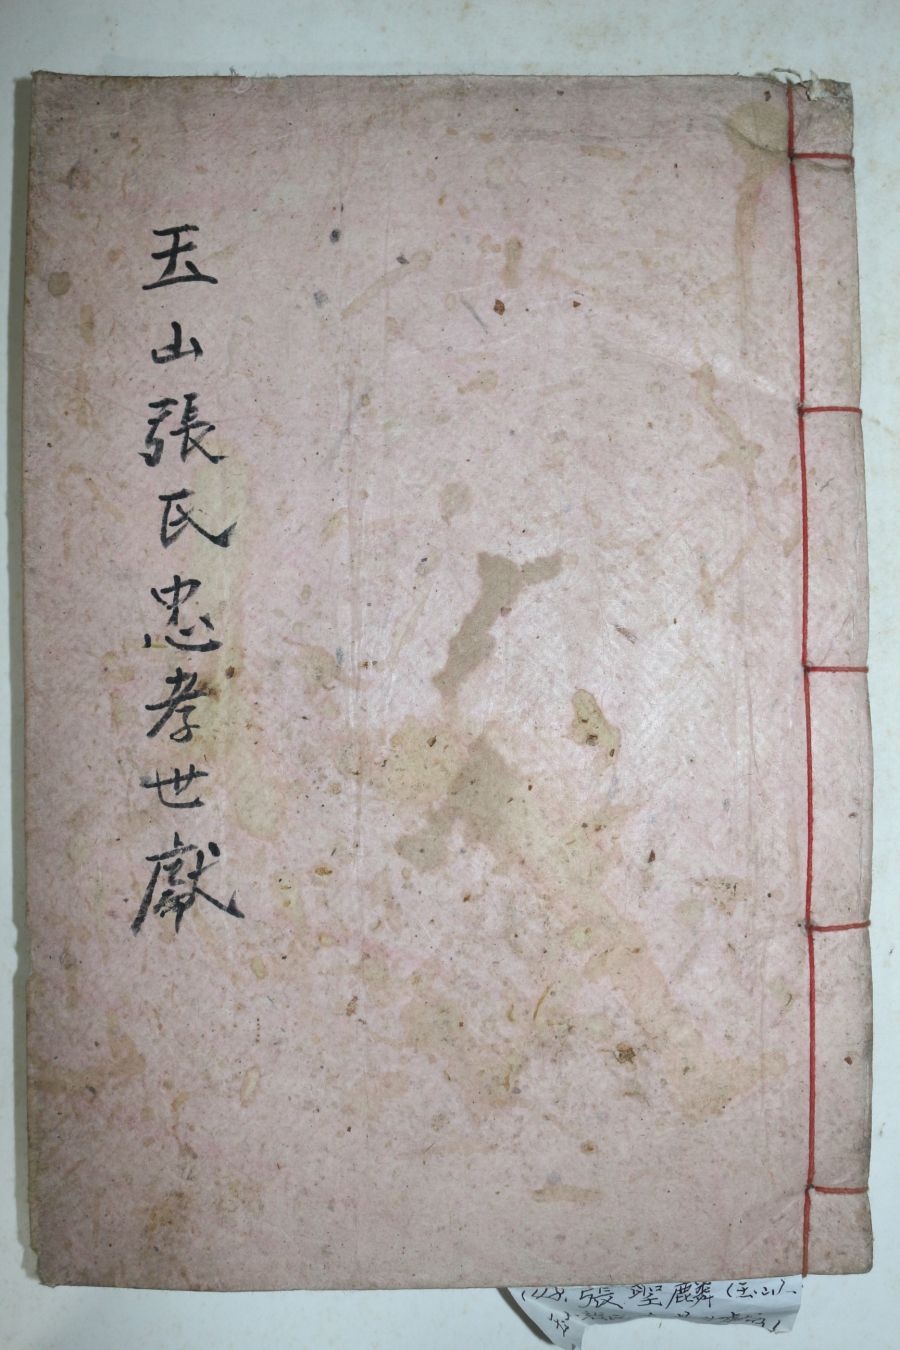 玉山張氏忠孝世獻
張聖麟(玉山)